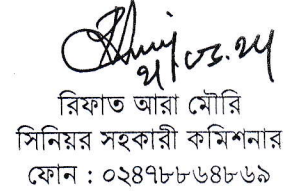 রিফাত আরা মৌরি
সিনিয়র সহকারী কমিশনার
ফোন : ০২৪৭৮৮৬৪৮৬৯